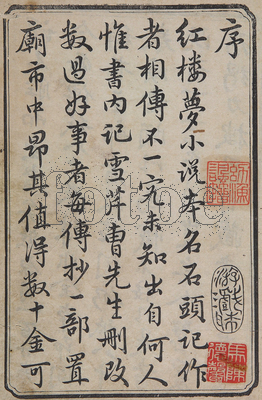 序
紅楼夢小說本名石頭記作
者相傳不一究未知出自何人
惟書內記雪芹曹先生刪改
数過好事者每傳抄一部置
廟市中昂其值得数十金可
fotoe